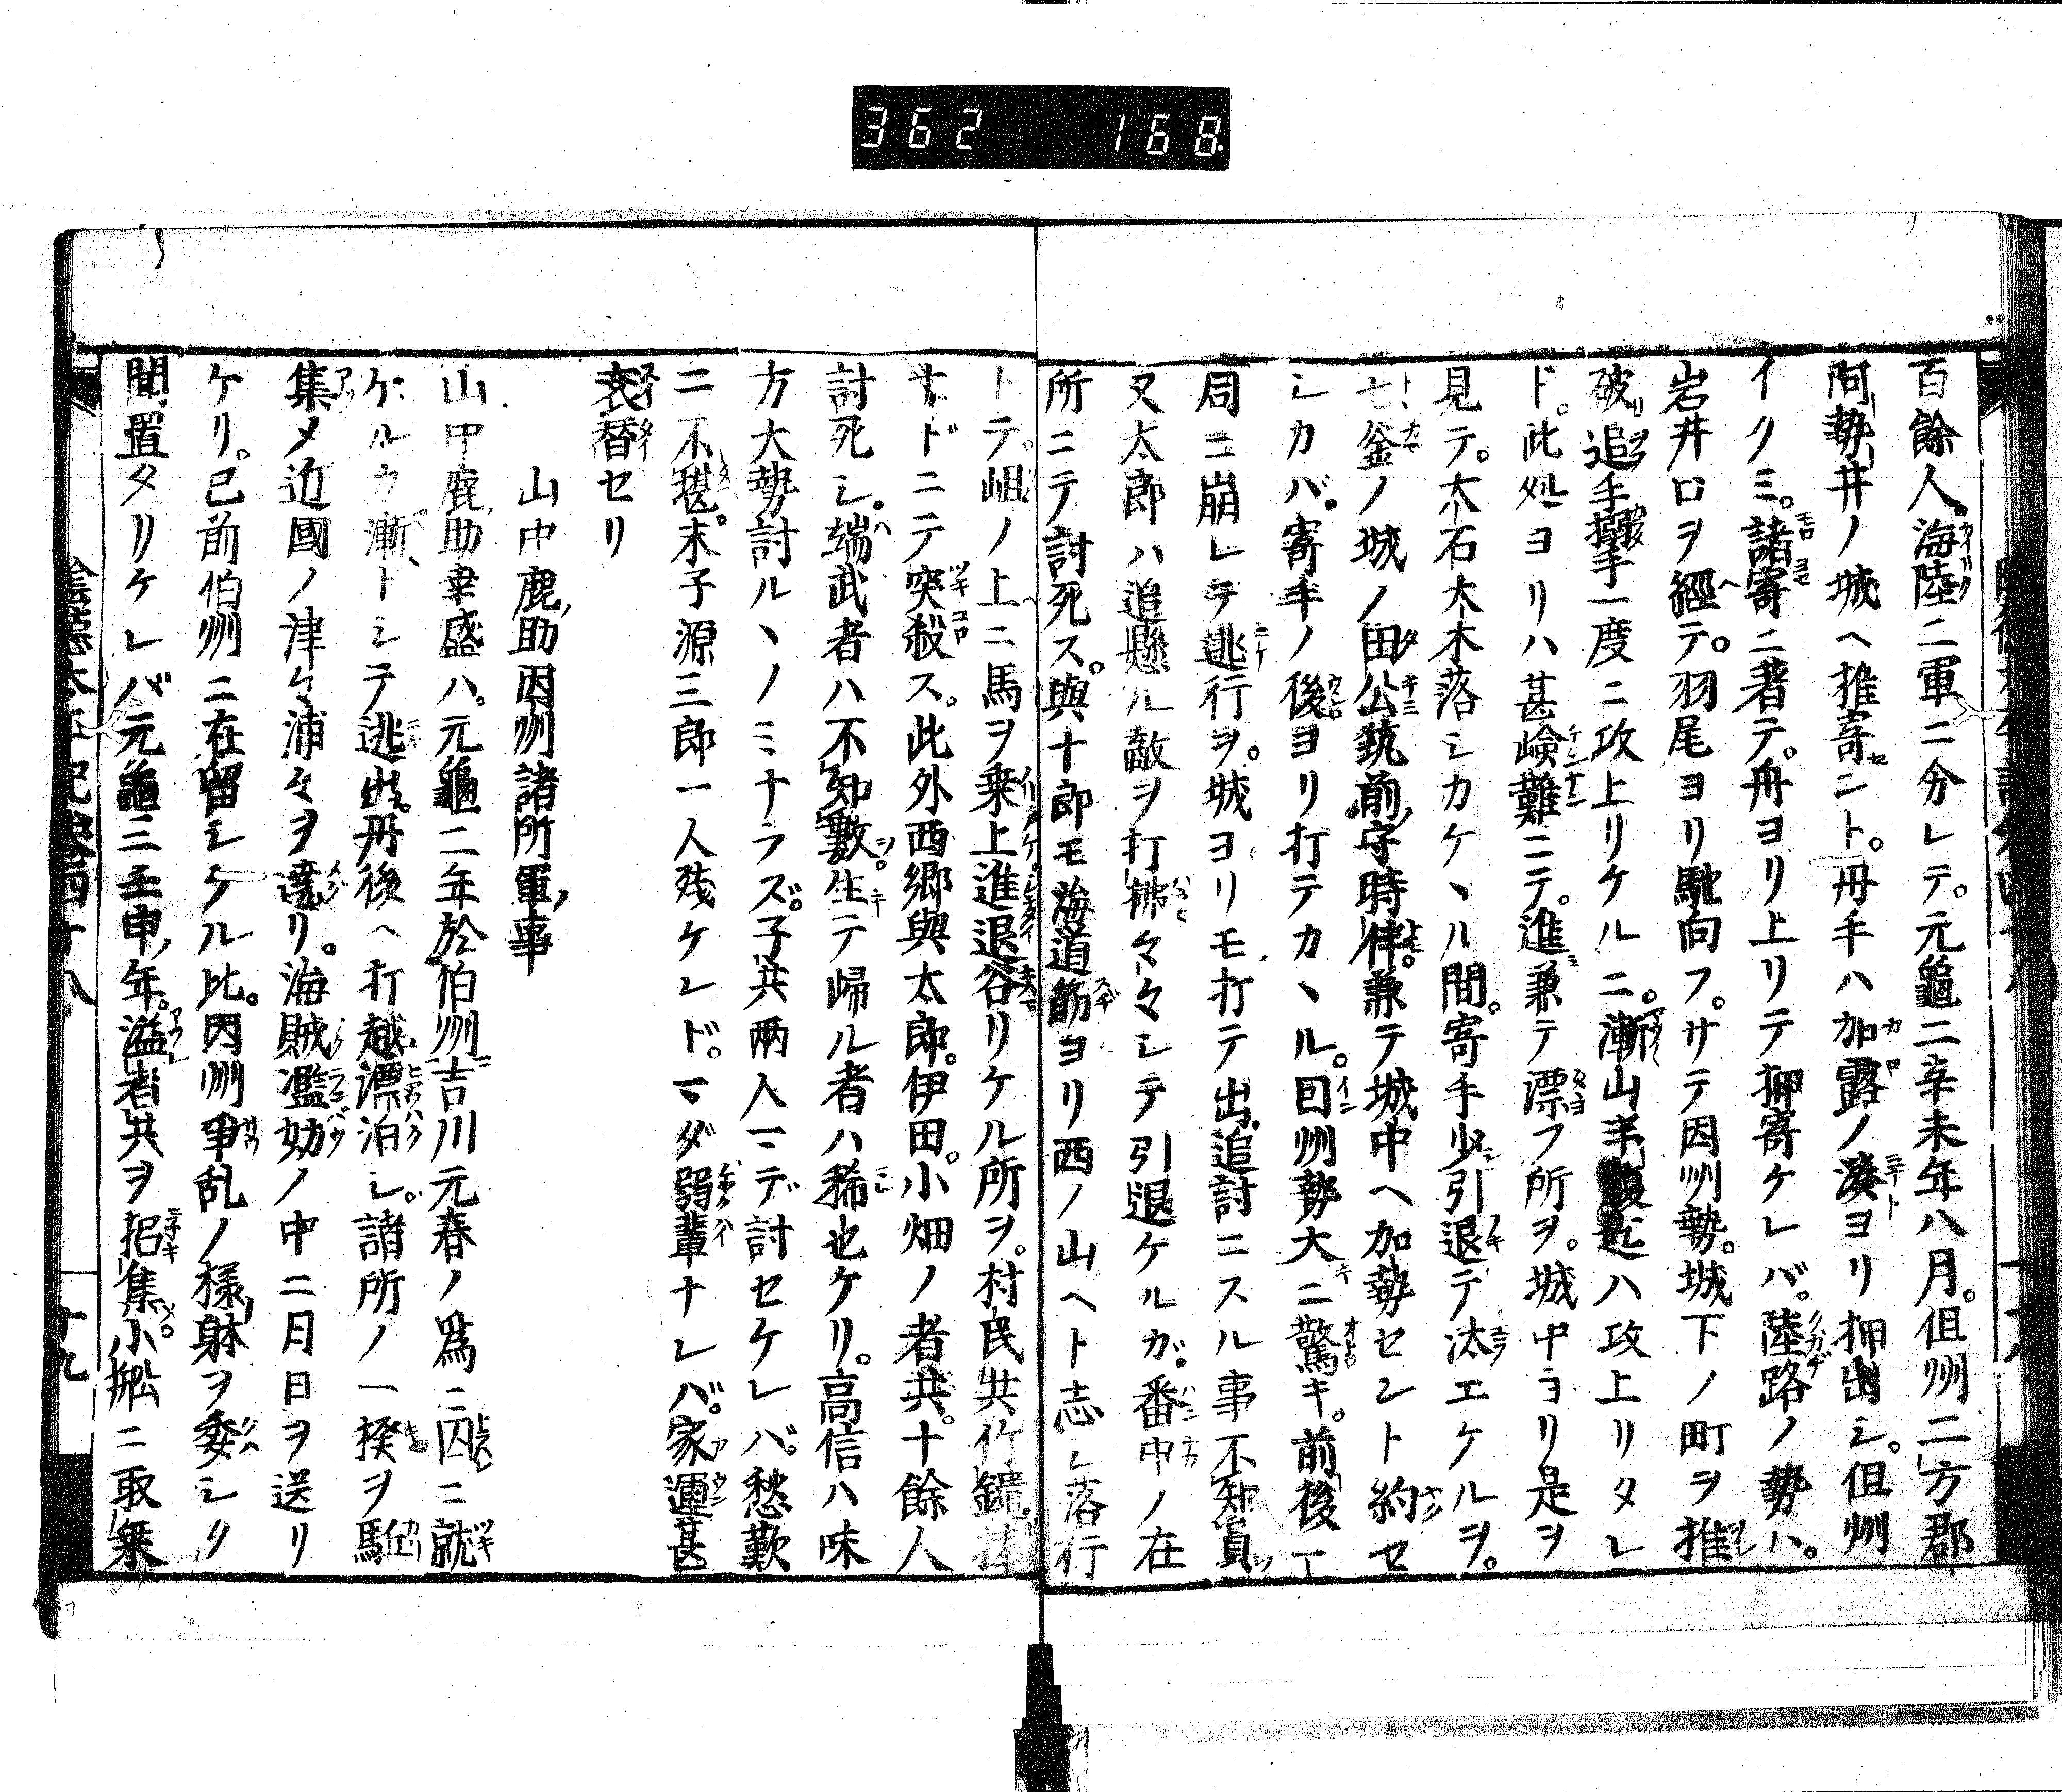 362 168.
百餘人。海陸二軍ニ分レテ。元龜二辛未年八月。但州二方郡
阿勢井ノ城ヘ推寄ント。舟手ハ加露ノ湊ヨリ押出シ。但州
イクミ。諸寄ニ著テ。舟ヨリ上リテ押寄ケレバ。陸路ノ勢ハ。
岩井口ヲ經テ。羽尾ヨリ馳向フ。サテ因州勢。城下ノ町ヲ推
破追手搦手一度ニ攻上リケルニ。漸山半腹迄ハ攻上リタレ
ド。此処ヨリハ甚嶮難ニテ。進兼テ漂フ所ヲ。城中ヨリ是ヲ
見テ。大石大木落シカケヽル間。寄手少引退テ汰エケルヲ。
七釜ノ城ノ田公筑前守時伴。兼テ城中ヘ加勢セント約セ
シカバ。寄手ノ後ヨリ打テカヽル。因州勢大ニ驚キ。前後一
同ニ崩レテ逃行ヲ。城ヨリモ打テ出追討ニスル事不知員
又太郎ハ追懸ル敵ヲ打拂々々シテ引退ケルガ。番中ノ在
所ニテ討死ス。與十郎モ海道筋ヨリ西ノ山ヘト志シ落行
トテ。岨ノ上ニ馬ヲ乗上進退谷リケル所ヲ。村民共竹鑓
ナドニテ突殺ス。此外西郷與太郎。伊田。小畑ノ者共。十餘人
討死シ。端武者ハ不知數。生テ歸ル者ハ稀也ケリ。高信ハ味
方大勢討ルヽノミナラズ。子共兩人マデ討セケレバ。愁歎
ニ不堪。末子源三郎一人残ケレド。マダ弱輩ナレバ。家運甚
衰替セリ
山中鹿助因州諸所軍事
山中鹿助幸盛ハ。元龜二年於伯州吉川元春ノ爲ニ囚ニ就
ケルカ。漸トシテ逃出。丹後ヘ打越漂泊シ。諸所ノ一揆ヲ駈
集メ近國ノ津々浦々ヲ遶リ。海賊濫妨ノ中ニ月日ヲ送リ
ケリ。已前伯州ニ在留シケル比。因州爭乱ノ様躰ヲ委シク
聞置タリケレバ元龜三壬申年。溢者共ヲ招集小舩ニ取乗
陰徳太平記卷四十八
十九